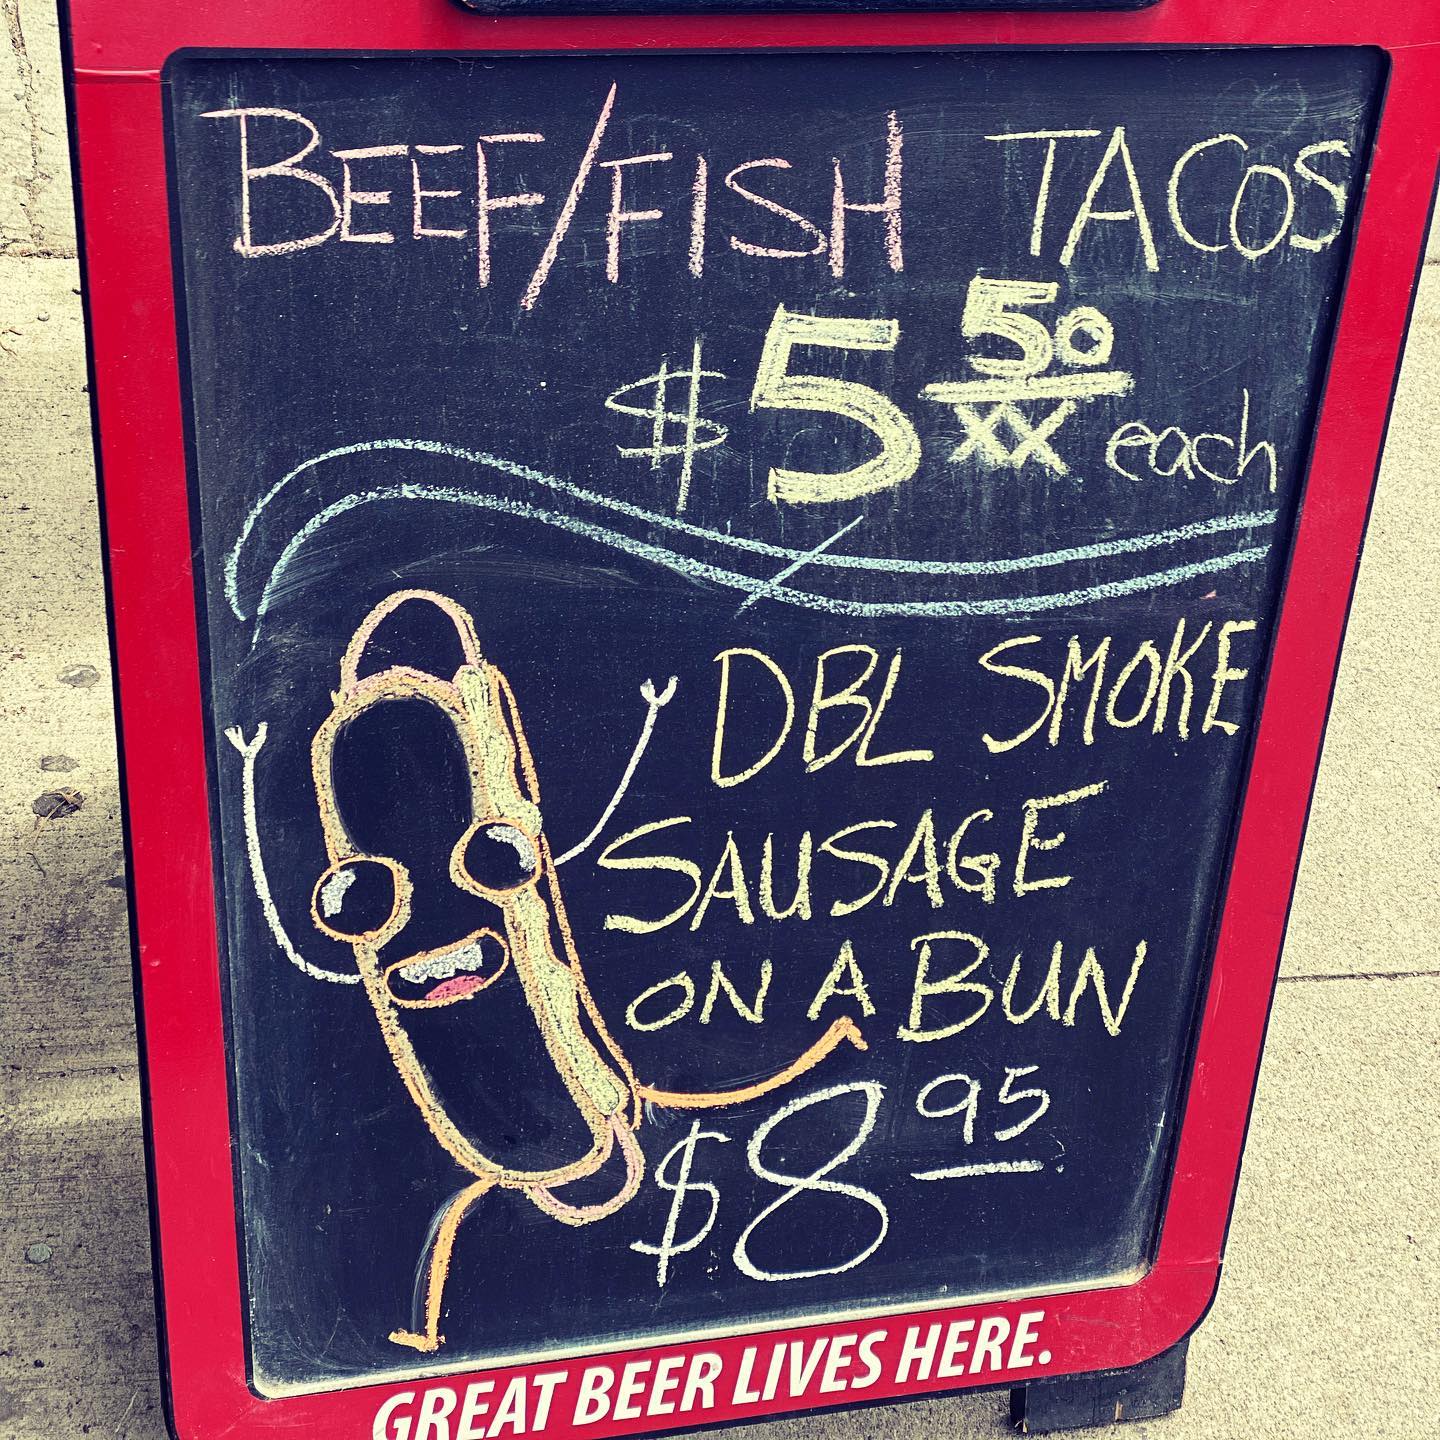 BEEF/FISH TACOS
$5 50/XX each
DBL SMOKE
SAUSAGE
ON A BUN
$8 95
GREAT BEER LIVES HERE.